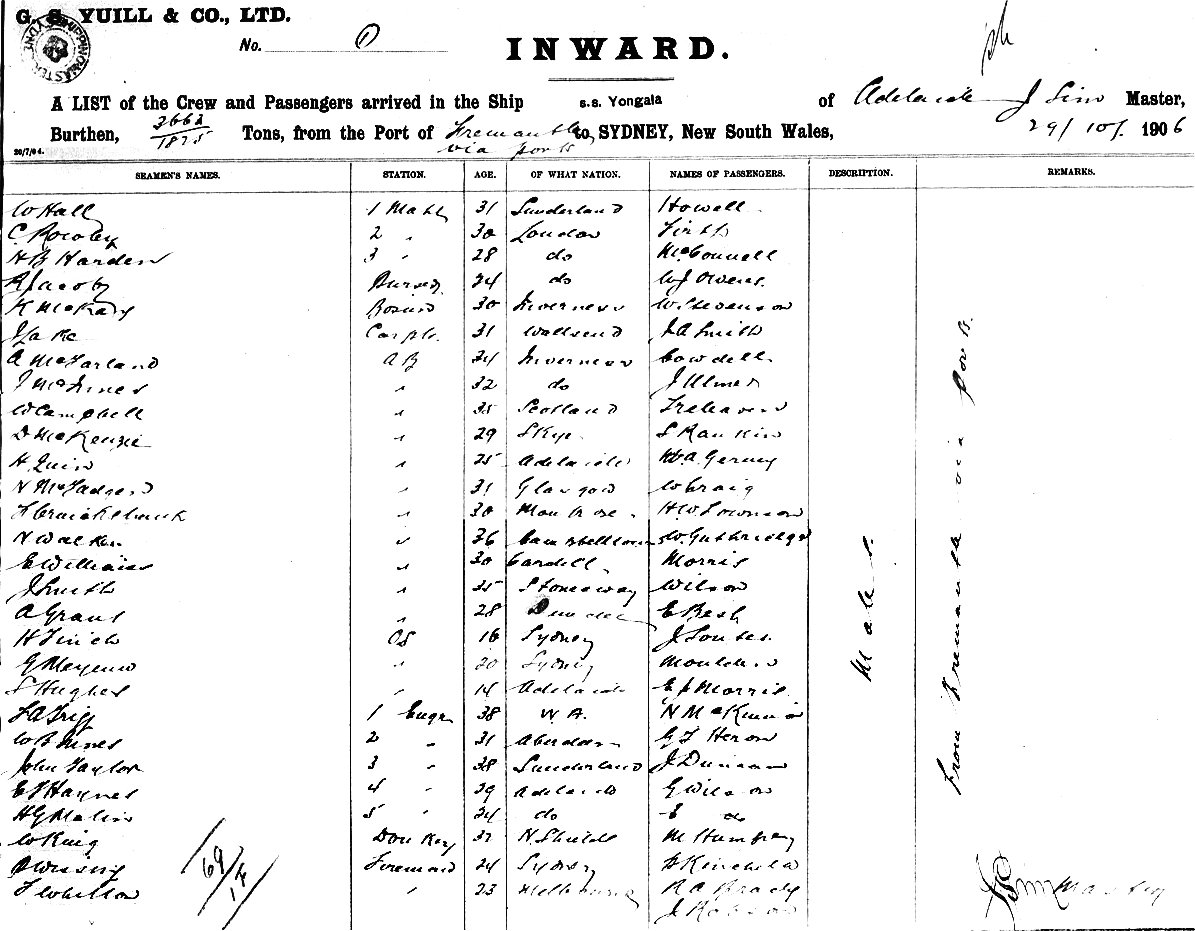 G. S. YUILL & CO., LTD.
No. 0
INWARD.
A LIST of the Crew and Passengers arrived in the Ship s.s. Yongala of Adelaide J Sim Master,
Burthen, 3663/1825 Tons, from the Port of Fremantle via ports to SYDNEY, New South Wales, 29/10/ 1906
20/7/04.
SEAMEN'S NAMES. STATION. AGE. OF WHAT NATION. NAMES OF PASSENGERS. DESCRIPTION. REMARKS.
W Hall 1 Mate 31 Sunderland Howell
C. Rowley 2 " 30 London Firth
H B Harden 3 " 28 do McConnell
R Jacoby Purser 24 do W J Owens
K McKay Bosun 30 Inverness W Stevenson
J Lake Carptr. 31 Wallsend J A Smith
A McFarland AB 34 Inverness Cowdell
J McInnes " 32 do J Ulmer
W Campbell " 35 Scotland Treleaven
D McKenzie " 29 Skye S Rankin
H Quin " 25 Adelaide A Gerney
N McFadgen " 31 Glasgow W Craig
" 30 Montrose H W Townson
N Walker " 36 Campbelltown W Guthridge
E Williams " 30 Cardiff Morris
J Smith " 35 Stornoway Wilson
A Grant " 28 Dundee E Besh
H Finch OS 16 Sydney J
G " 20 Sydney Moulden
S Hughes " 14 Adelaide E J Morris
F A Trigg 1 Engr 38 W.A. N McKinnon
W B Innes 2 " 31 Aberdeen G F Heron
John Taylor 3 " 38 Sunderland J Duncan
E F Haynes 4 " 29 Adelaide G Wilson
H G Malin 5 " 24 do E do
W King Donkey 37 N Shields M Humfrey
Fireman 24 Sydney Kinchela
F Whillow " 23 Melbourne R C Brady
J Robson
Males
From Fremantle via ports
69/14
J Sim Master